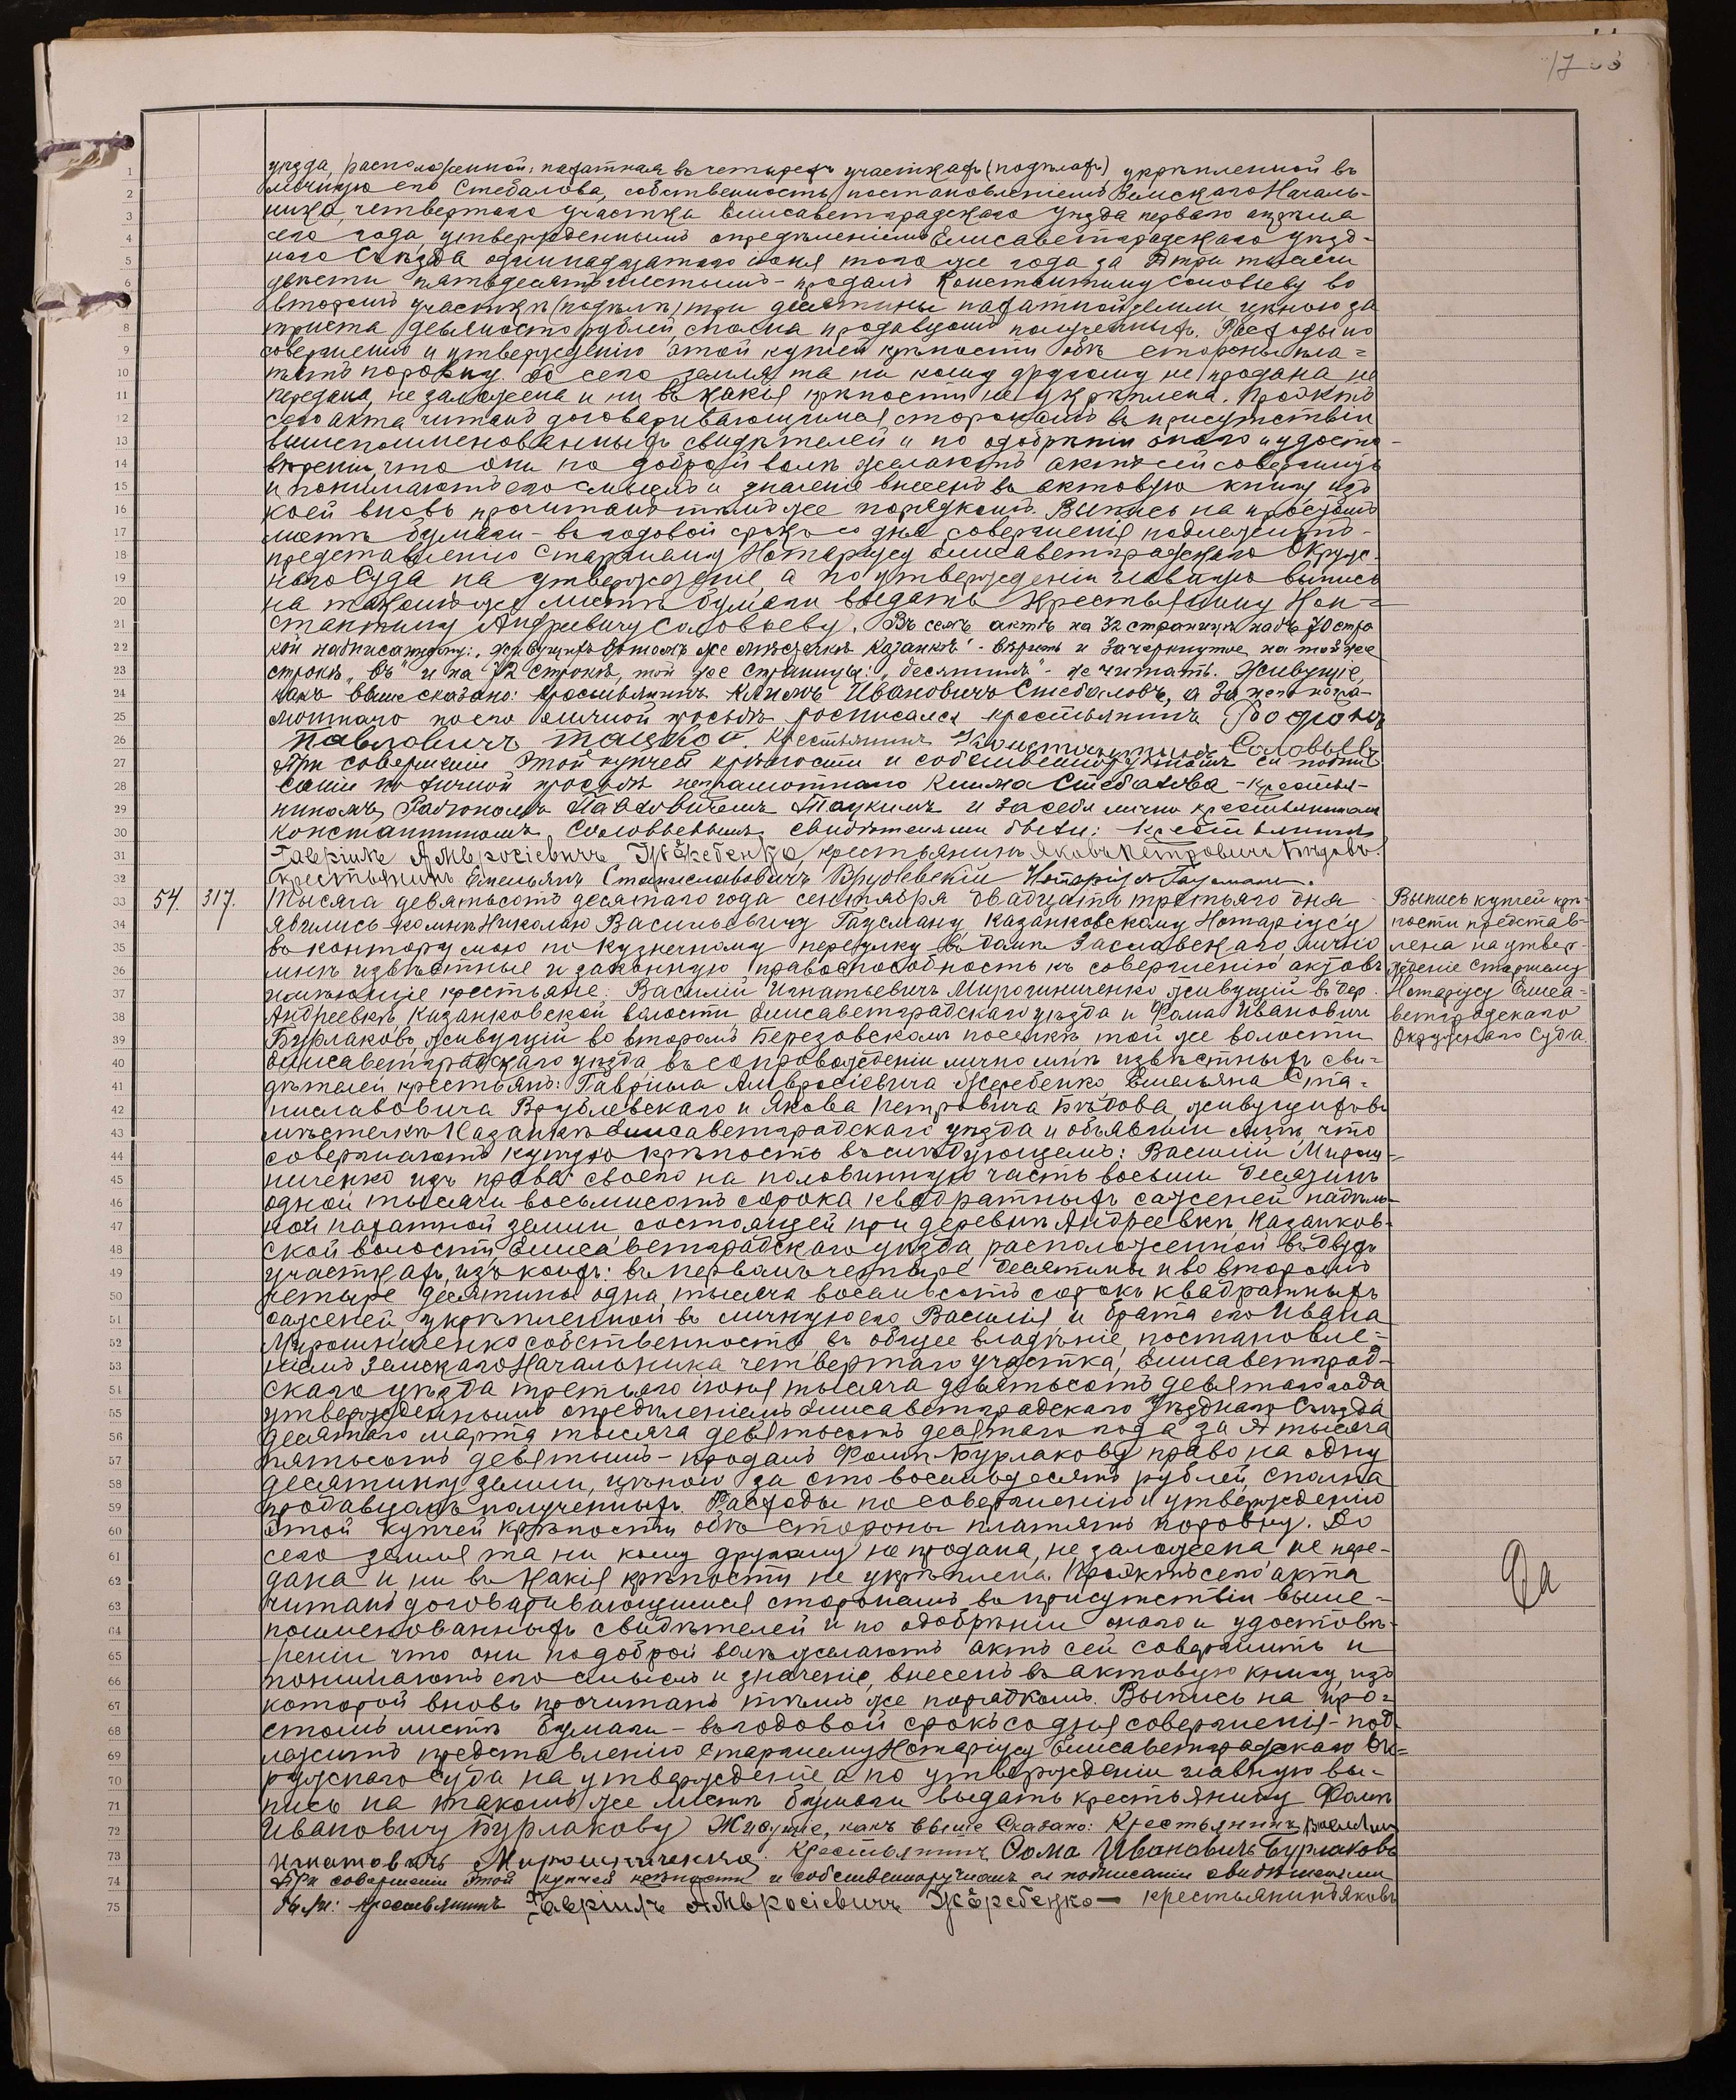 уѣзда, расположенной: пахатная въ четырехъ участкахъ (подѣлахъ) укрѣпленной въ
личную его Стебалова, собственность постановленіемъ Земскаго Началь-
ника четвертаго участка Елисаветградскаго уѣзда перваго апрѣля
сего года, утвержденнымъ опредѣленіемъ Елисаветградскаго уѣзд-
наго Съѣзда одиннадцатаго іюня того же года за № три тысячи
двѣсти пятьдесятъ шестымъ - продалъ Константину Соловьеву во
второмъ участкѣ (подѣлѣ) три десятины пахатной земли, цѣною за
триста девяносто рублей, сполна продавцомъ полученныхъ. Расходы по
совершенію и утвержденію этой купчей крѣпости обѣ стороны пла=
тятъ поровну. До сего земля та ни кому другому не продана не
передана, не заложена и ни въ какія крѣпости не укрѣплена. Проэктъ
сего акта читанъ договаривающимся сторонамъ въ присутствіи
вышепоименованныхъ свидѣтелей и по одобреніи онаго и удосто-
вѣреніи, что они по доброй волѣ желаютъ актъ сей совершить
и понимаютъ его смыслъ и значеніе внесенъ въ актовую книгу изъ
коей вновь прочитанъ тѣмъ же порядкомъ. Выпись на простомъ
листѣ бумаги - въ годовой срокъ со дня совершенія подлежитъ -
представленію Старшему Нотаріусу Елисаветградскаго Окруж-
наго Суда на утвержденіе, а по утвержденіи главную выпись
на такомъ же листѣ бумаги выдать крестьянину Кон=
стантину Андреевичу Соловьеву. Въ семъ актѣ на 32 страницѣ надъ 70 стро
кой надписанному: "живущихъ въ томъ же мѣстечкѣ Казанкѣ" - вѣрить и зачеркнутое на той же
строкѣ "въ" и на 72 строкѣ, той же страницы: "десятинъ" - не читать. Живущіе,
какъ выше сказано: Крестьянинъ Климъ Ивановичъ Стебаловъ, а за негра-
мотнаго по его личной просьбѣ росписался крестьянинъ Родіонъ
Павловичъ Тацкій. Крестьянинъ Константинъ Соловьевъ
При совершеніи этой купчей крѣпости и собственноручномъ ея подпи-
саніи по личной просьбѣ неграмотнаго Клима Стебалова - крестья-
ниномъ Родіономъ Павловичемъ Тацкимъ и за себя лично крестьяниномъ
Константиномъ Соловьевымъ свидѣтелями были: крестьянинъ
Гавріилъ Амвросіевичъ Жеребенко, крестьянинъ Яковъ Петровичъ Бѣдовъ.
Крестьянинъ Емельянъ Станиславовичъ Врублевскій Нотаріусъ Гаусманъ.
54. 317. Тысяча девятьсотъ десятаго года сентября двадцать третьяго дня
явились ко мнѣ Николаю Васильевичу Гаусману, Казанковскому Нотаріусу
въ контору мою по Кузнечному переулку въ домѣ Заславскаго лично
мнѣ извѣстные и законную правоспособность къ совершенію актовъ
имѣющіе крестьяне: Василій Игнатьевичъ Мирошниченко живущій въ дер.
Андреевкѣ Казанковской волости Елисаветградскаго уѣзда и Фома Ивановичъ
Бурлаковъ, живущій во второмъ Березовскомъ поселкѣ, той же волости
Елисаветградскаго уѣзда въ сопровожденіи лично мнѣ извѣстныхъ сви-
дѣтелей крестьянъ: Гавріила Амвросіевича Жеребенко Емельяна Ста-
ниславовича Врублевскаго и Якова Петровича Бѣдова, живущихъ въ
мѣстечкѣ Казанкѣ Елисаветградскаго уѣзда и объявили мнѣ, что
совершаютъ купчую крѣпость въ слѣдующемъ: Василій Мирош-
ниченко изъ права своего на половинную часть восьми десятинъ
одной тысячи восьмисотъ сорока квадратныхъ саженей надѣль-
ной пахатной земли, состоящей при деревнѣ Андреевкѣ, Казанков-
ской волости Елисаветградскаго уѣзда, расположенной въ двухъ
участкахъ, изъ коихъ: въ первомъ четыре десятины и во второмъ
четыре десятины одна тысяча восемьсотъ сорокъ квадратныхъ
саженей, укрѣпленной въ личную его, Василія и брата его Ивана
Мирошниченко собственность, въ общее владѣніе, постановле=
ніемъ Земскаго Начальника четвертаго участка, Елисаветград-
скаго уѣзда третьяго іюня тысяча девятьсотъ девятаго года
утвержденнымъ опредѣленіемъ Елисаветградскаго Уѣзднаго Съѣзда
десятаго марта тысяча девятьсотъ десятаго года за № тысяча
пятьсотъ девятымъ - продалъ Фомѣ Бурлакову право на одну
десятину земли, цѣною за сто восемьдесятъ рублей, сполна
продавцомъ полученныхъ. Расходы по совершенію и утвержденію
этой купчей крѣпости обѣ стороны платятъ поровну. До
сего земля та ни кому другому не продана, не заложена не пере-
дана и ни въ какія крѣпости не укрѣплена. Проэктъ сего акта
читанъ договаривающимся сторонамъ въ присутствіи выше-
поименованныхъ свидѣтелей и по одобреніи онаго и удостовѣ-
реніи что они по доброй волѣ желаютъ актъ сей совершить и
понимаютъ его смыслъ и значеніе, внесенъ въ актовую книгу, изъ
которой вновь прочитанъ тѣмъ же порядкомъ. Выпись на про=
стомъ листѣ бумаги - въ годовой срокъ со дня совершенія - под-
лежитъ представленію Старшему Нотаріусу Елисаветградскаго Ок=
ружнаго Суда на утвержденіе, а по утвержденіи главную вы-
пись на такомъ же листѣ бумаги выдать крестьянину Фомѣ
Ивановичу Бурлакову Живущіе, какъ выше сказано: Крестьянинъ Василій
Игнатовичъ Мирошниченко. Крестьянинъ Фома Ивановичъ Бурлаковъ
При совершеніи этой купчей крѣпости и собственноручномъ ея подписаніи свидѣтелями
были: крестьянинъ Гавріилъ Амвросіевичъ Жеребенко - крестьянинъ Яковъ
Выпись купчей крѣ-
пости представ-
лена на утвер-
жденіе Старшему
Нотаріусу Елиса-
ветградскаго
Окружнаго Суда.